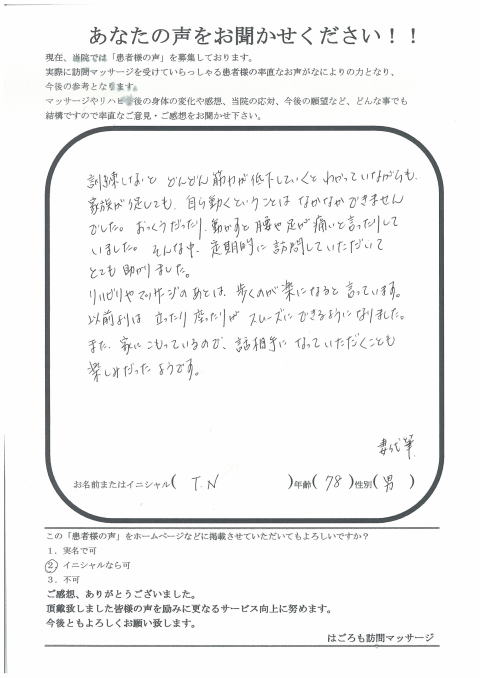 あなたの声をお聞かせください！！
現在、当院では「患者様の声」を募集しております。
実際に訪問マッサージを受けていらっしゃる患者様の率直なお声がなによりの力となり、
今後の参考となります。
マッサージやリハビリ後の身体の変化や感想、当院の応対、今後の願望など、どんな事でも
結構ですので率直なご意見・ご感想をお聞かせ下さい。
訓練しないと どんどん筋力が低下していくと わかっていながらも、
家族が促しても、自ら動くということは なかなかできません
でした。おっくうだったり、動かすと腰や足が痛いと言ったりして
いました。そんな中、定期的に訪問していただいて
とても助かりました。
リハビリやマッサージのあとは、歩くのが楽になると言っています。
以前よりは 立ったり座ったりが スムーズにできるようになりました。
また、家にこもっているので、話相手になっていただくことも
楽しみだったようです。
妻代筆
お名前またはイニシャル( T.N )年齢( 78 )性別( 男 )
この「患者様の声」をホームページなどに掲載させていただいてもよろしいですか？
１．実名で可
②．イニシャルなら可
３．不可
ご感想、ありがとうございました。
頂戴致しました皆様の声を励みに更なるサービス向上に努めます。
今後ともよろしくお願い致します。
はごろも訪問マッサージ